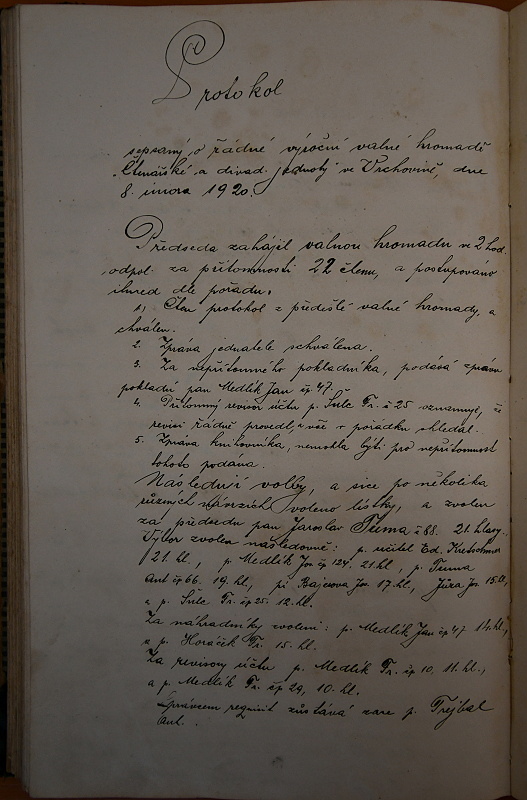 Protokol
sepsaný o řádné výroční valné hromadě
"Čtenářské a divad. jednoty" ve Vrchovině, dne
8. února 1920.
Předseda zahájil valnou hromadu ve 2 hod.
odpol. za přítomnosti 22 členu, a postupováno
ihned dle pořadu.
1, Čten protokol z předešlé valné hromady, a
chválen.
2. Zpráva jednatele schválena.
3. Za nepřítomného pokladníka, podává zprávu
pokladní pan Medlík Jan čp 47.
4. Přítomný revisor účtu p. Šulc Fr. č 25 oznamuje, že
revisi řádně provedl, a vše v pořádku shledal.
5. Zpráva knihovníka, nemohla býti pro nepřítomnost
tohoto podána.
Následují volby, a sice po několika
různých názorzích voleno lístky, a zvolen
za předsedu pan Jaroslav Tuma č 88. 21. hlasy.
Výbor zvolen následovně: p. učitel Ed. Kretschmer
21. hl., p. Medlík Jos čp 124. 21 hl., p. Tuma
Ant čp 66. 19. hl., pí Bajerova Jos. 17. hl., Jůza Jos. 15 hl,
a p. Šulc Fr. čp 25. 12. hl.
Za náhradníky zvoleni: p. Medlík Jan čp 47 14. hl,
a p. Horáček Fr. 15. hl.
Za revisory účtu p. Medlík Fr. čp 10, 11. hl.,
a p. Medlík Fr. čp 29, 10. hl.
Správcem requisit zůstává zase p. Trejbal
Ant.